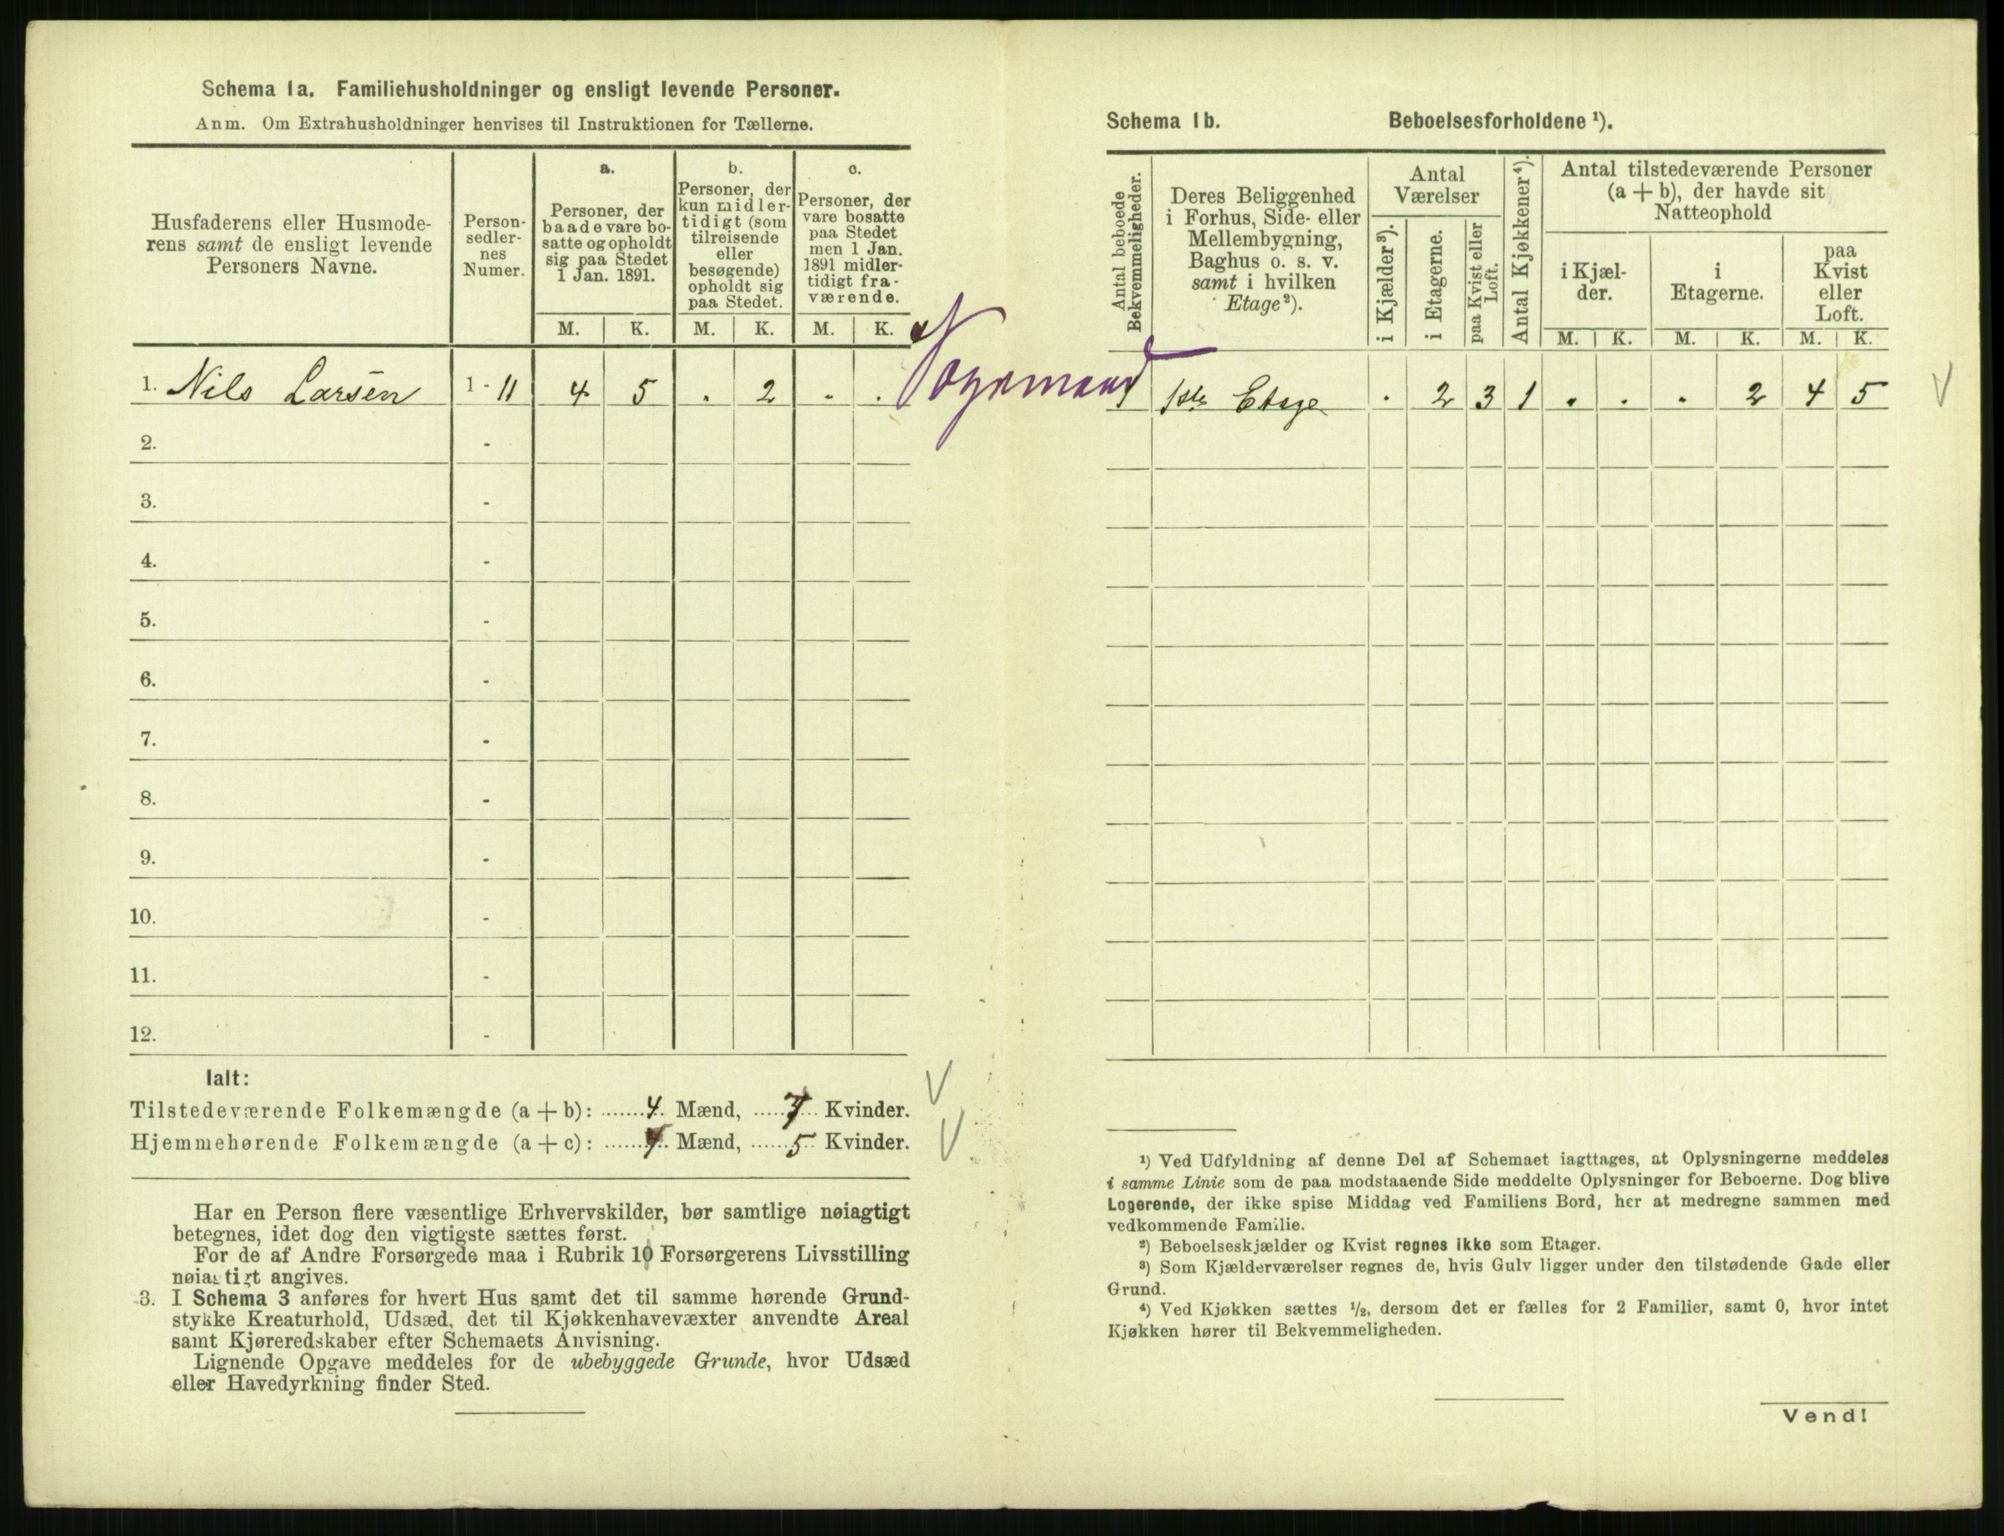 Schema 1a. Familiehusholdninger og ensligt levende Personer.
Anm. Om Extrahusholdninger henvises til Instruktionen for Tællerne.
Husfaderens eller Husmode-
rens samt de ensligt levende
Personers Navne.
Person-
sedler-
nes
Numer.
a.
Personer, der
baade vare bo-
satte og opholdt
sig paa Stedet
1 Jan. 1891.
b.
Personer, der
kun midler-
tidigt (som
tilreisende
eller
besøgende)
opholdt sig
paa Stedet.
c.
Personer, der
vare bosatte
paa Stedet
men 1 Jan.
1891 midler-
tidigt fra-
værende.
M. K. M. K. M. K.
1. Nils Larsen 1 - 11 4 5 . 2 . .
2. -
3. -
4. -
5. -
6. -
7. -
8. -
9. -
10. -
11. -
12. -
Ialt:
Tilstedeværende Folkemængde (a + b): ...... 4 Mænd, ..... 7 Kvinder.
Hjemmehørende Folkemængde (a + c): ...... 4 Mænd, ...... 5 Kvinder.
Har en Person flere væsentlige Erhvervskilder, bør samtlige nøiagtigt
betegnes, idet dog den vigtigste sættes først.
For de af Andre Forsørgede maa i Rubrik 10 Forsørgerens Livsstilling
nøiagtigt angives.
3. I Schema 3 anføres for hvert Hus samt det til samme hørende Grund-
stykke Kreaturhold, Udsæd, det til Kjøkkenhavevæxter anvendte Areal
samt Kjøreredskaber efter Schemaets Anvisning.
Lignende Opgave meddeles for de ubebyggede Grunde, hvor Udsæd
eller Havedyrkning finder Sted.
Schema 1b. Beboelsesforholdene ¹).
Antal beboede
Bekvemmeligheder.
Deres Beliggenhed
i Forhus, Side- eller
Mellembygning,
Baghus o. s. v.
samt i hvilken
Etage²).
Antal
Værelser
i Kjælder³).
i Etagerne.
paa Kvist eller
Loft.
Antal Kjøkkener⁴).
Antal tilstedeværende Personer
(a + b), der havde sit
Natteophold
i Kjæl-
der.
i
Etagerne.
paa
Kvist
eller
Loft.
M. K. M. K. M. K.
1 1ste Etage . 2 3 1 . . . 2 4 5
¹) Ved Udfyldning af denne Del af Schemaet iagttages, at Oplysningerne meddeles
i samme Linie som de paa modstaaende Side meddelte Oplysninger for Beboerne. Dog blive
Logerende, der ikke spise Middag ved Familiens Bord, her at medregne sammen med
vedkommende Familie.
²) Beboelseskjælder og Kvist regnes ikke som Etager.
³) Som Kjælderværelser regnes de, hvis Gulv ligger under den tilstødende Gade eller
Grund.
⁴) Ved Kjøkken sættes ¹/₂, dersom det er fælles for 2 Familier, samt 0, hvor intet
Kjøkken hører til Bekvemmeligheden.
Vend!